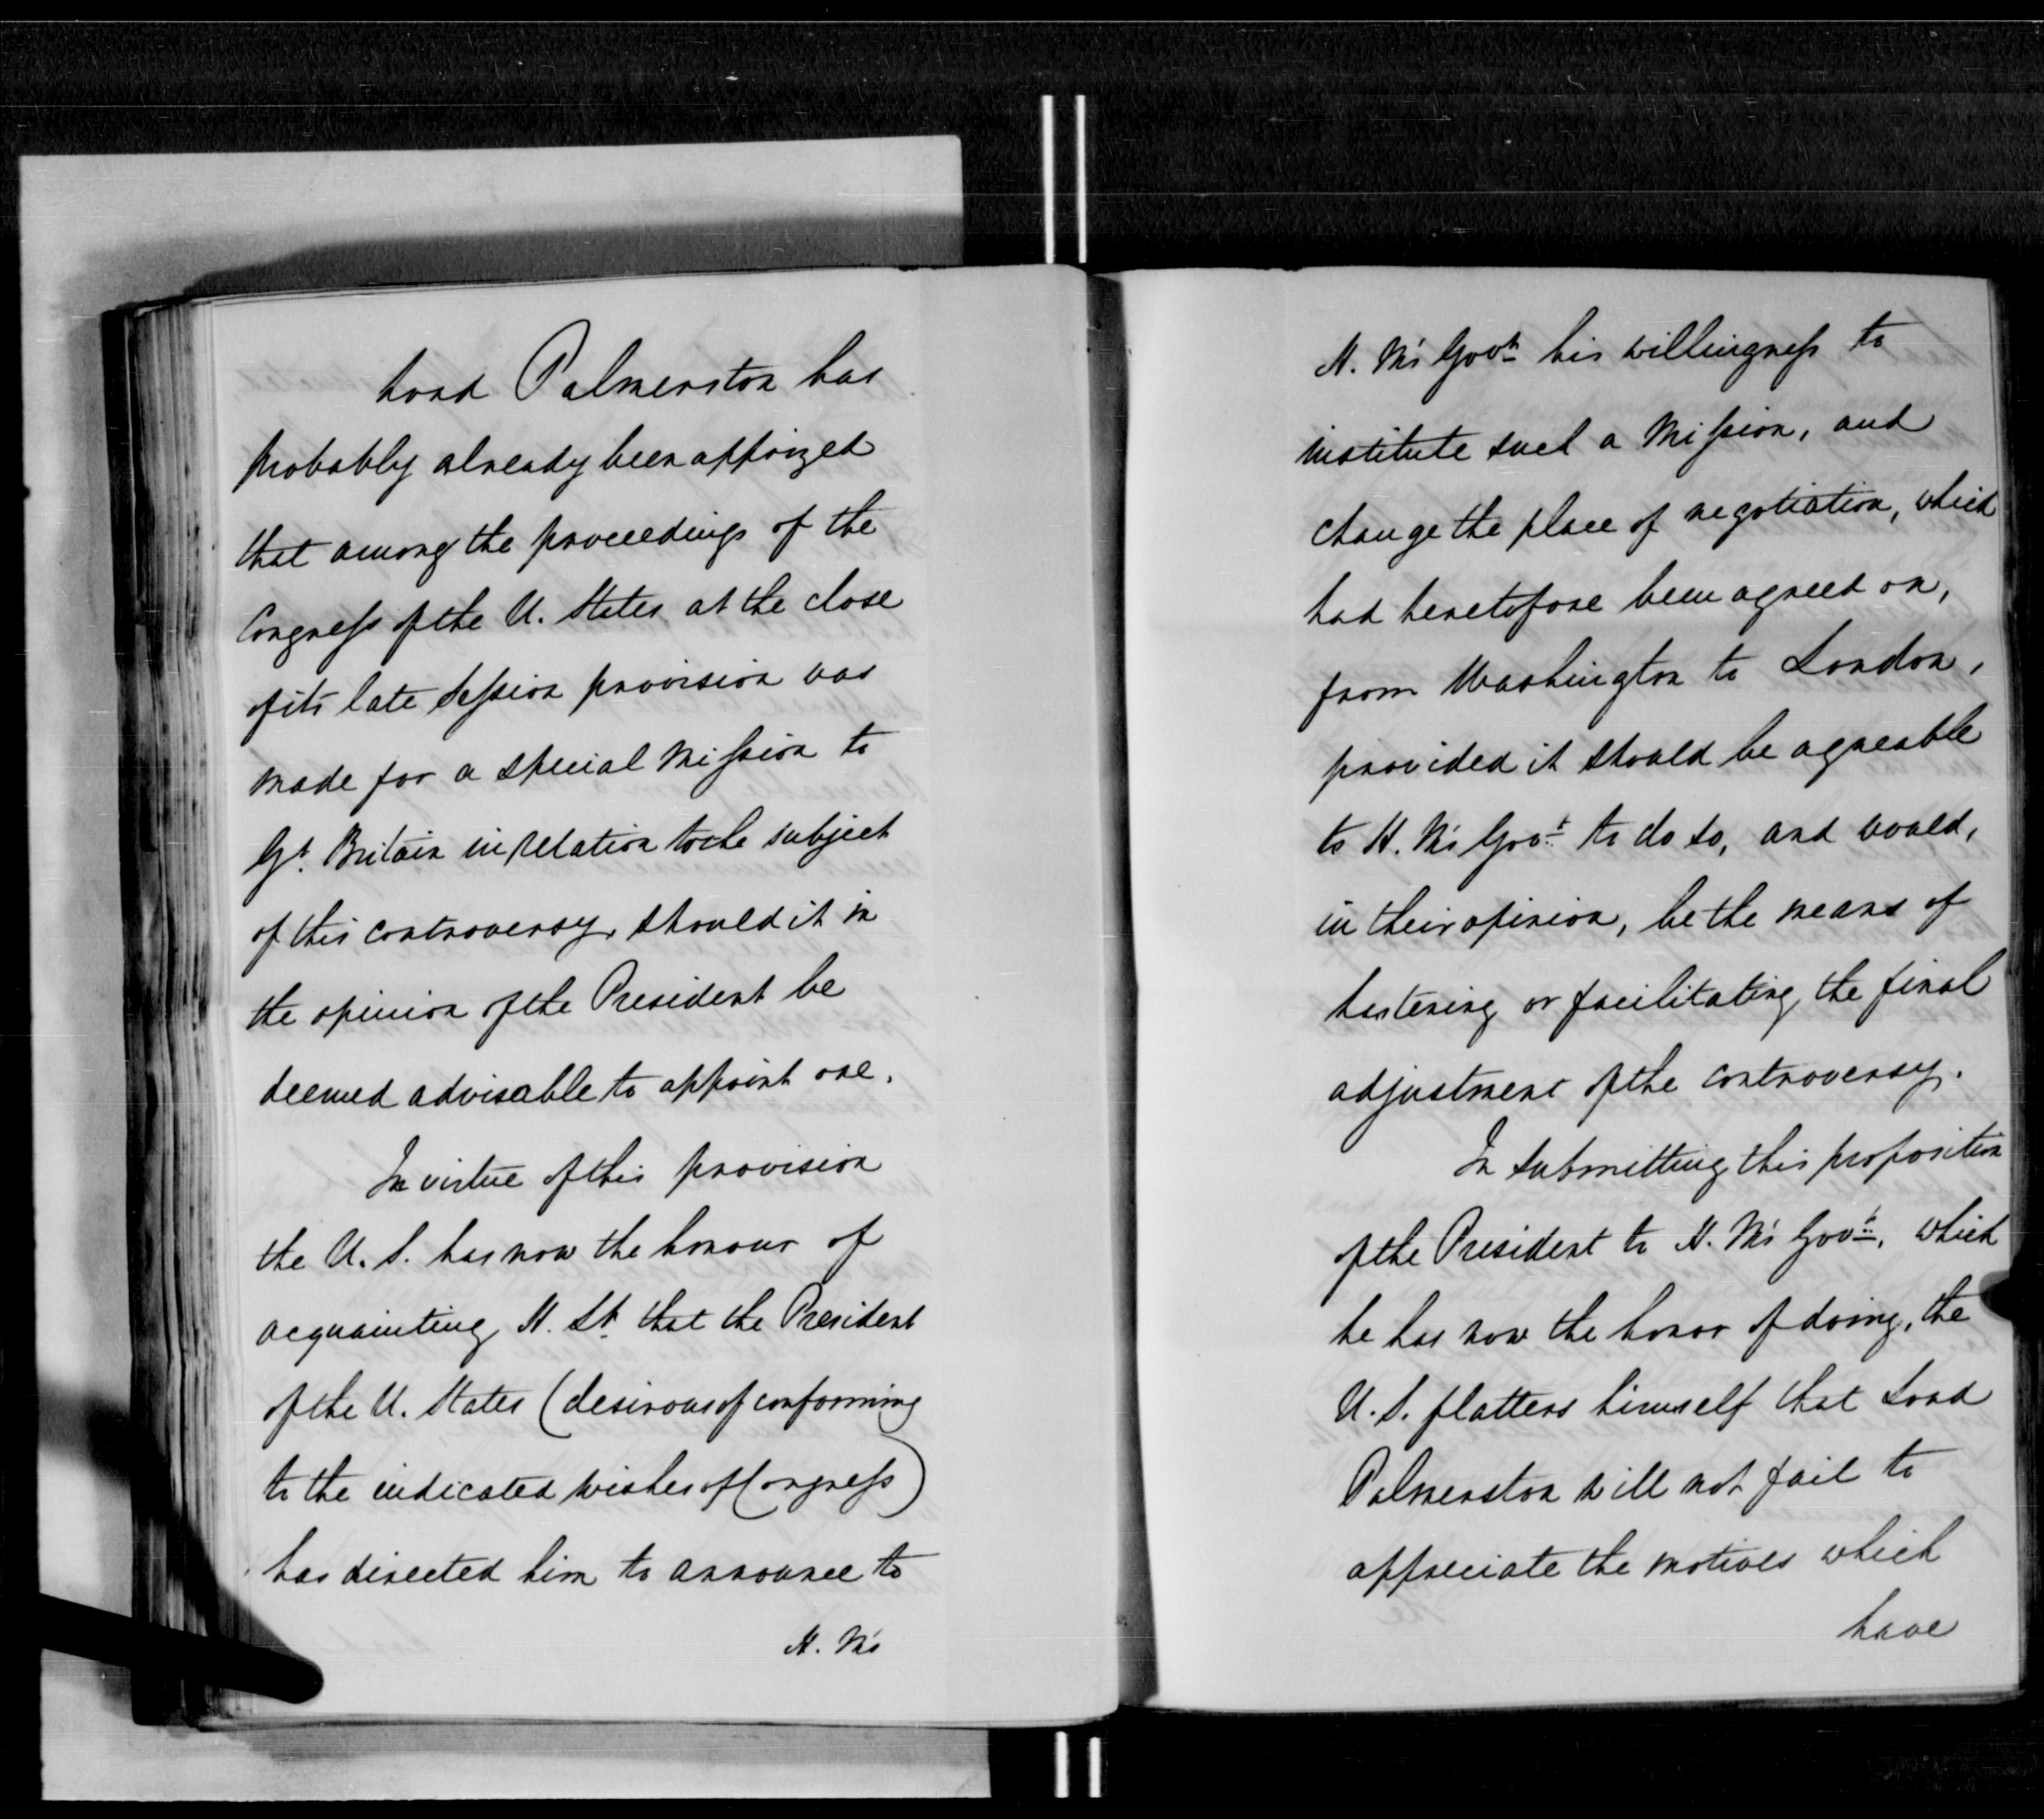 Lord Palmerston has
probably already been apprized
that among the proceedings of the
Congress of the U. States at the close
of its late session provision was
made for a special Mission to
Gt. Britain in relation to the subject
of this controversy, should it in
the opinion of the President be
deemed advisable to appoint one.
In virtue of this provision
the U. S. has now the honour of
acquainting H. Lp. that the President
of the U. States (desirous of conforming
to the indicated wishes of Congress)
has directed him to announce to
H. M's
H. M's Govt. his willingness to
institute such a Mission, and
change the place of negotiation, which
had heretofore been agreed on,
from Washington to London,
provided it should be agreable
to H. M's Govt. to do so, and would,
in their opinion, be the means of
hastening or facilitating the final
adjustment of the controversy.
In submitting this proposition
of the President to H. M's Govt., which
he has now the honor of doing, the
U. S. flatters himself that Lord
Palmerston will not fail to
appreciate the motives which
have